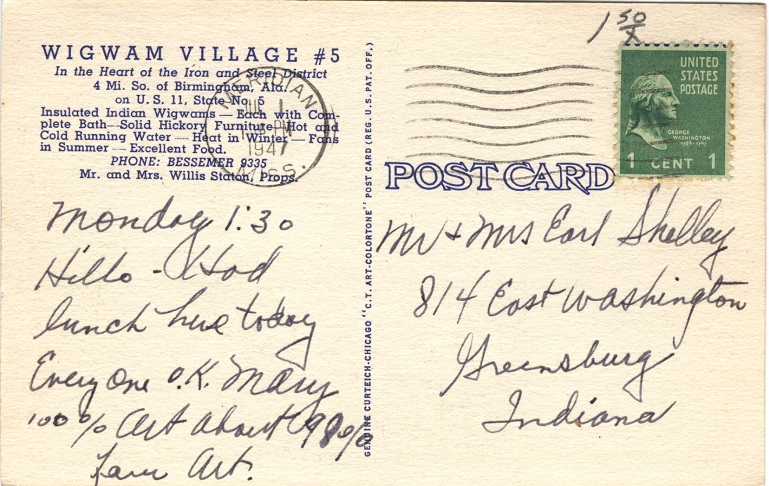 1 50/x
WIGWAM VILLAGE #5
In the Heart of the Iron and Steel District
4 Mi. So. of Birmingham, Ala.
on U. S. 11, State No. 5
Insulated Indian Wigwams — Each with Com-
plete Bath — Solid Hickory Furniture — Hot and
Cold Running Water — Heat in Winter — Fans
in Summer — Excellent Food.
PHONE: BESSEMER 9335
Mr. and Mrs. Willis Staton, Props.
MERIDIAN
JUL 1
PM
1947
MISS.
Monday 1:30
Hello - Had
lunch here today
Every one O.K. Mary
100% Art about 98%
Art.
GENUINE CURTEICH-CHICAGO "C.T. ART-COLORTONE" POST CARD (REG. U.S. PAT. OFF.)
UNITED
STATES
POSTAGE
GEORGE
WASHINGTON
1 CENT 1
POST CARD
Mr + Mrs Earl Shelley
814 East Washington
Greensburg
Indiana